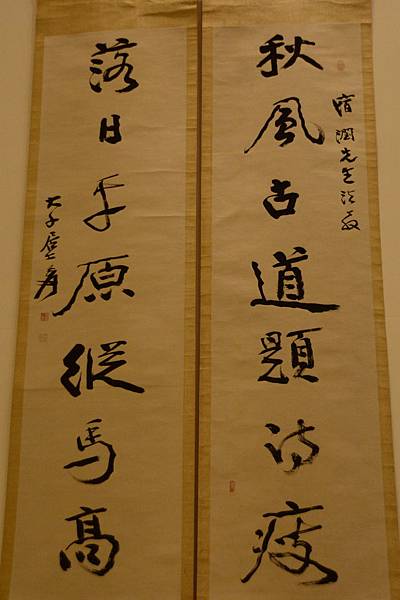 先生法教
秋風古道題詩瘦
落日平原縱馬高
大千居士爰